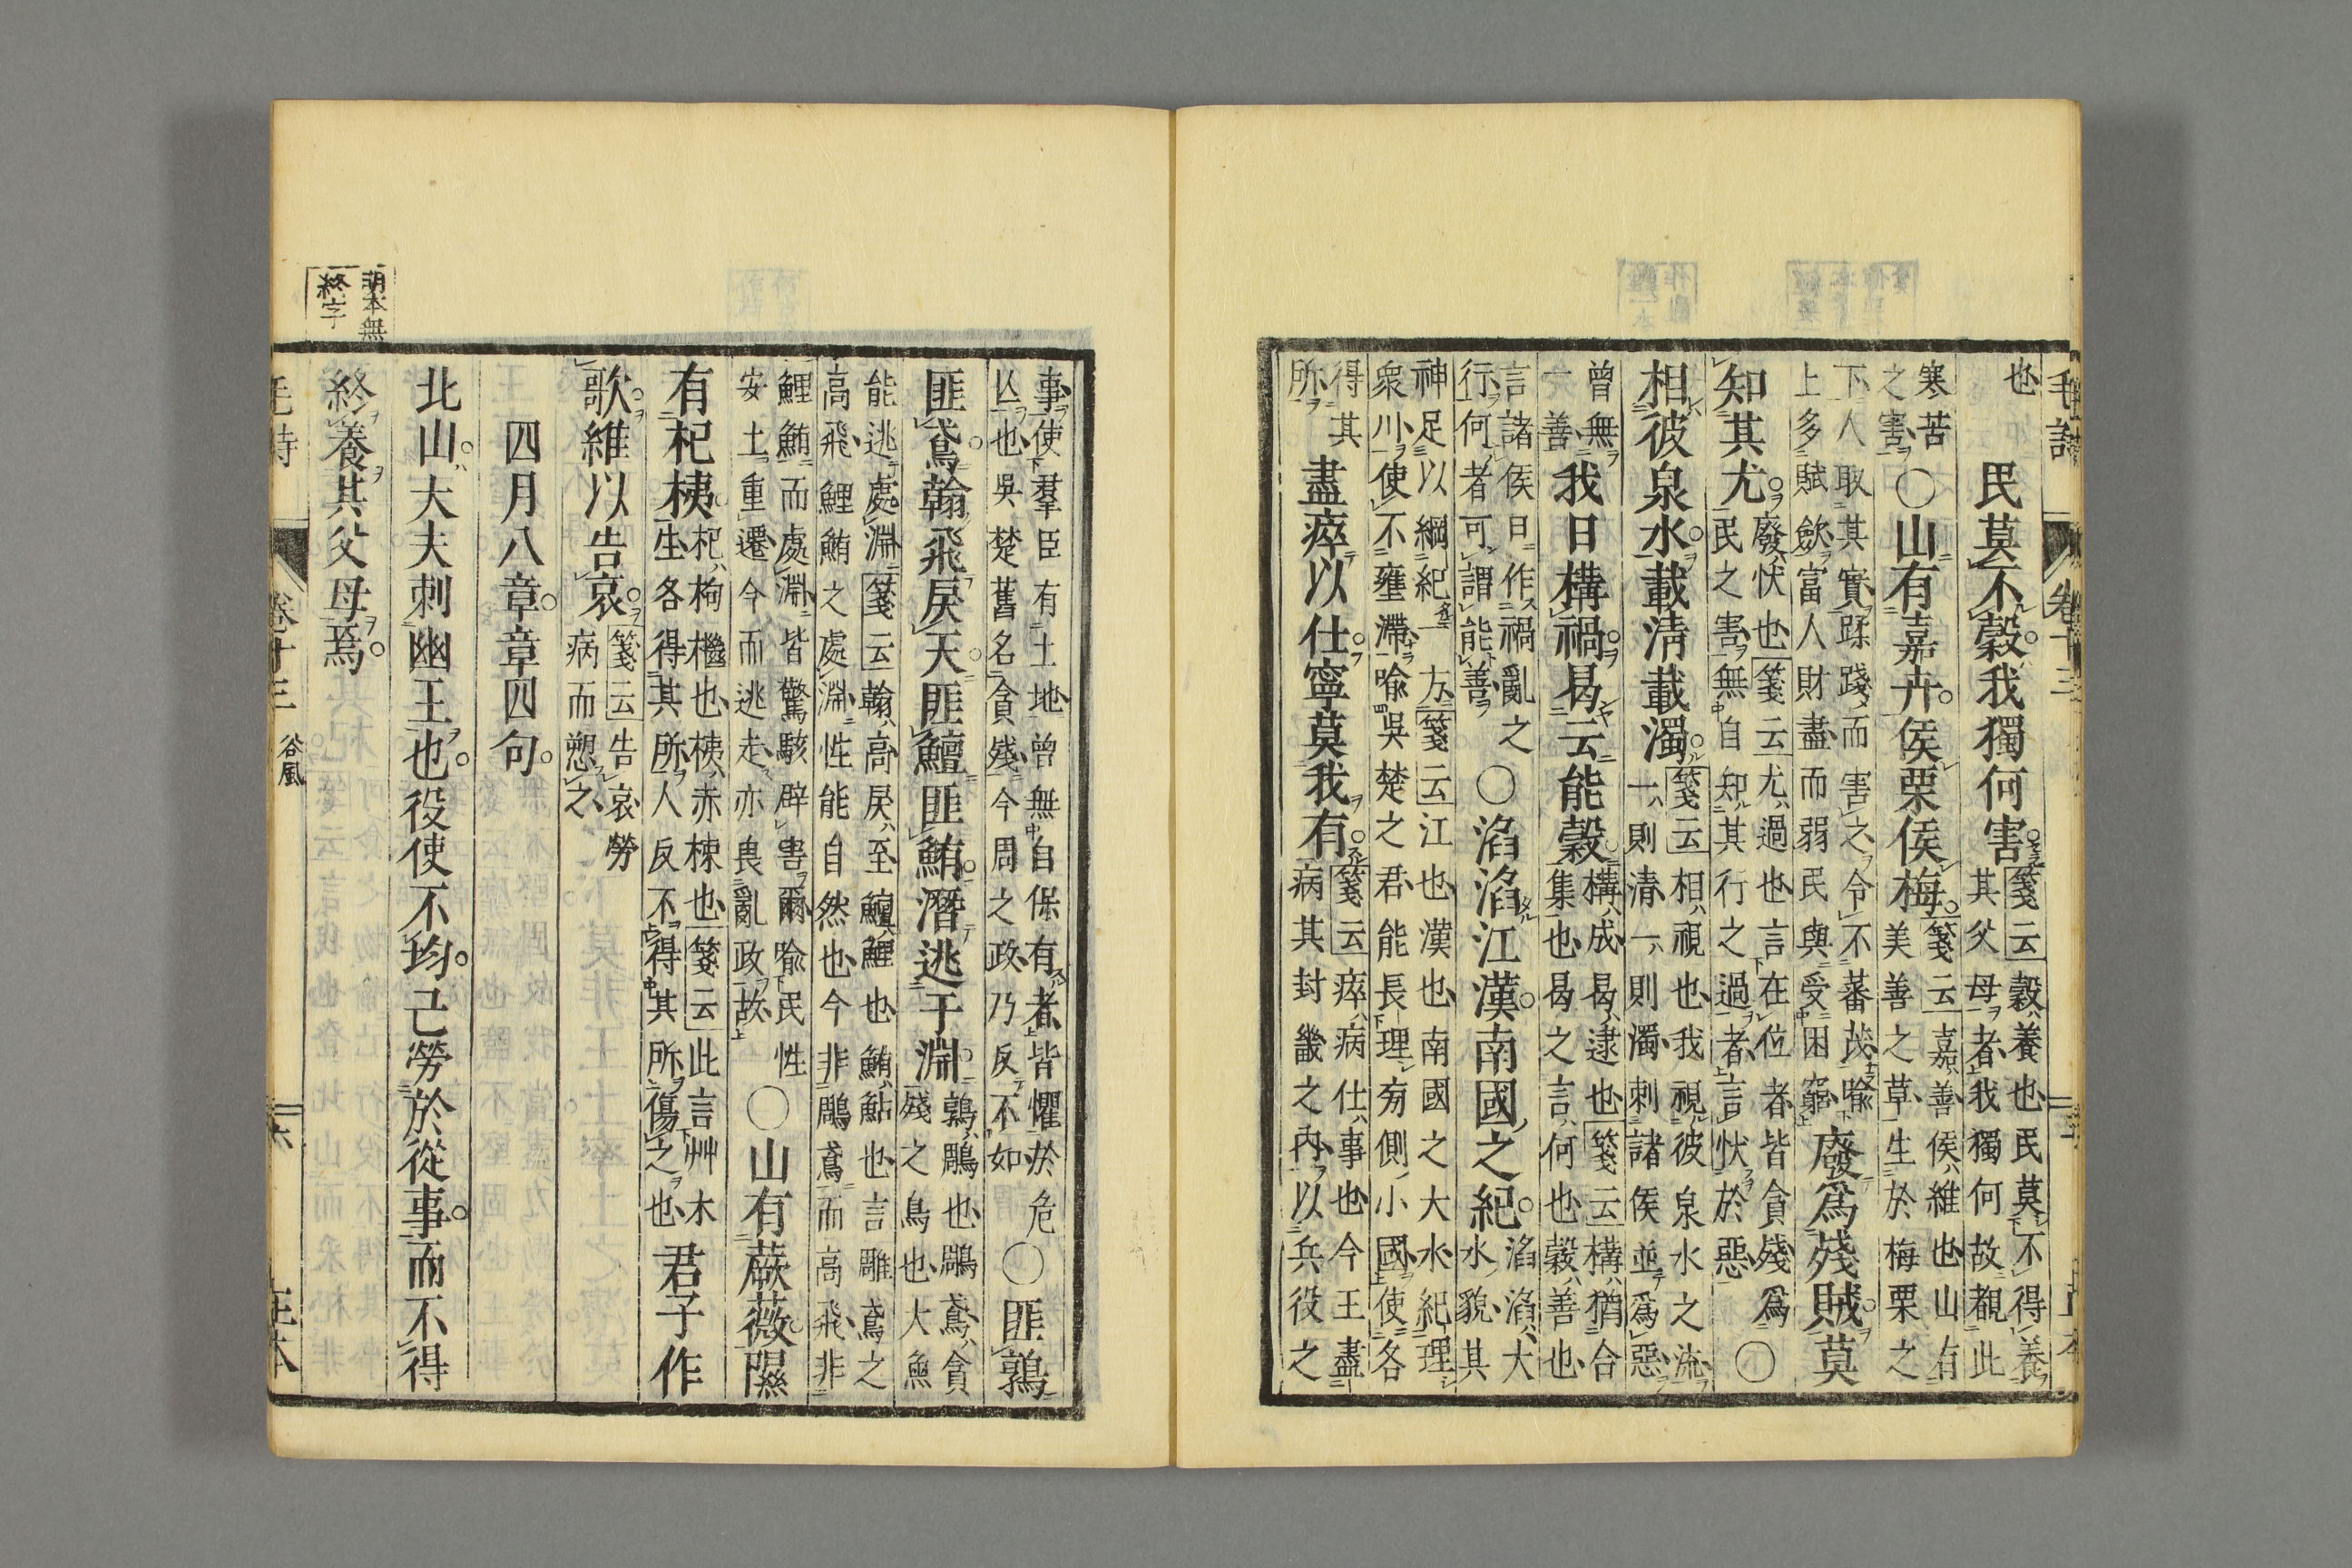 也民莫不穀我獨何害
箋云穀養也民莫不得養
其父母者我獨何故覩此
寒苦
之害
○山有嘉卉侯栗侯梅
箋云嘉善侯維也山有
美善之草生於梅栗之
下人取其實蹂踐而害之令不蕃茂喻
上多賦歛富人財盡而弱民與受困窮
廢爲殘賊莫
知其尤
廢忕也箋云尤過也言在位者皆貪殘爲
民之害無自知其行之過者言忕於惡
○
相彼泉水載淸載濁
箋云相視也我視彼泉水之流
一則清一則濁刺諸侯並爲惡
曾無
一善
我日構禍曷云能穀
構成曷逮也箋云構猶合
集也曷之言何也穀善也
言諸侯日作禍亂之
行何者可謂能善
○滔滔江漢南國之紀
滔滔大
水貌其
神足以綱紀一方箋云江也漢也南國之大水紀理
衆川使不壅滯喻吳楚之君能長理旁側小國使各
得其
所
盡瘁以仕寧莫我有
箋云瘁病仕事也今王盡
病其封畿之内以兵役之
事使羣臣有土地曾無自保有者皆懼於危
亾也吳楚舊名貪殘今周之政乃反不如
○匪鶉
匪鳶翰飛戾天匪鱣匪鮪潛逃于淵
鶉鵰也鵰鳶貪
殘之鳥也大魚
能逃處淵箋云翰高戾至鱣鯉也鮪鮎也言雕鳶之
高飛鯉鮪之處淵性能自然也今非鵰鳶而高飛非
鯉鮪而處淵皆驚駭辟害爾喻民性
安土重遷今而逃走亦畏亂政故
○山有蕨薇隰
有杞桋
杞枸檵也桋赤楝也箋云此言艸木
生各得其所人反不得其所傷之也
君子作
歌維以告哀
箋云告哀勞
病而愬之
四月八章章四句
北山大夫刺幽王也役使不均己勞於從事而不得
終養其父母焉
本無
終字
毛詩 卷十三 谷風